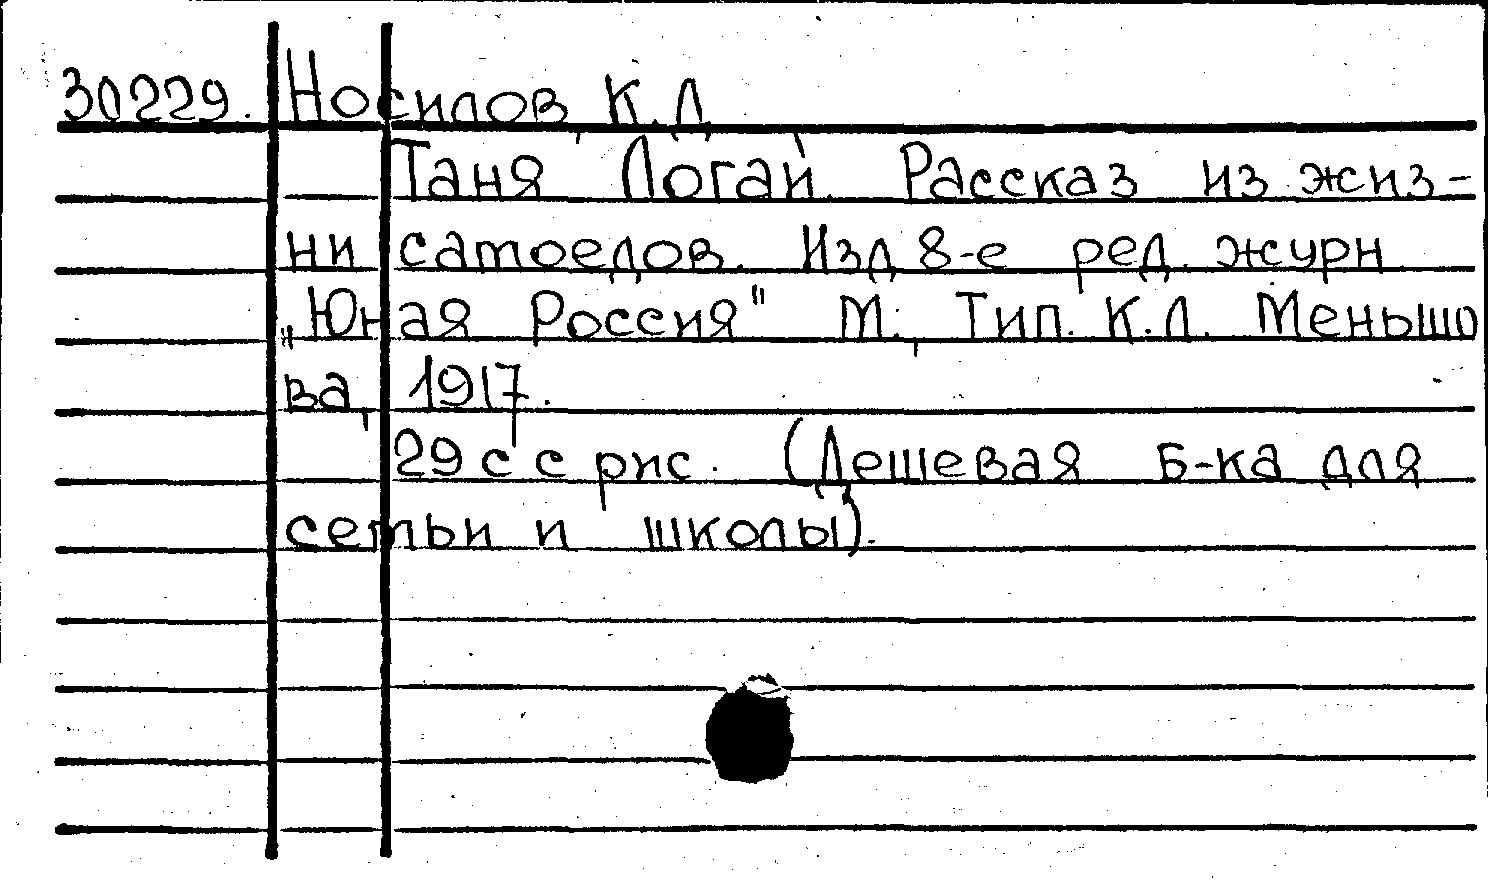 30229. Носилов, К.Д.
Таня Логай. Рассказ из жиз-
ни самоедов. Изд 8-е ред. журн
„Юная Россия" М., Тип. К.Л. Меньшо
ва, 1917.
29 с с рис. (Дешевая Б-ка для
семьи и школы).